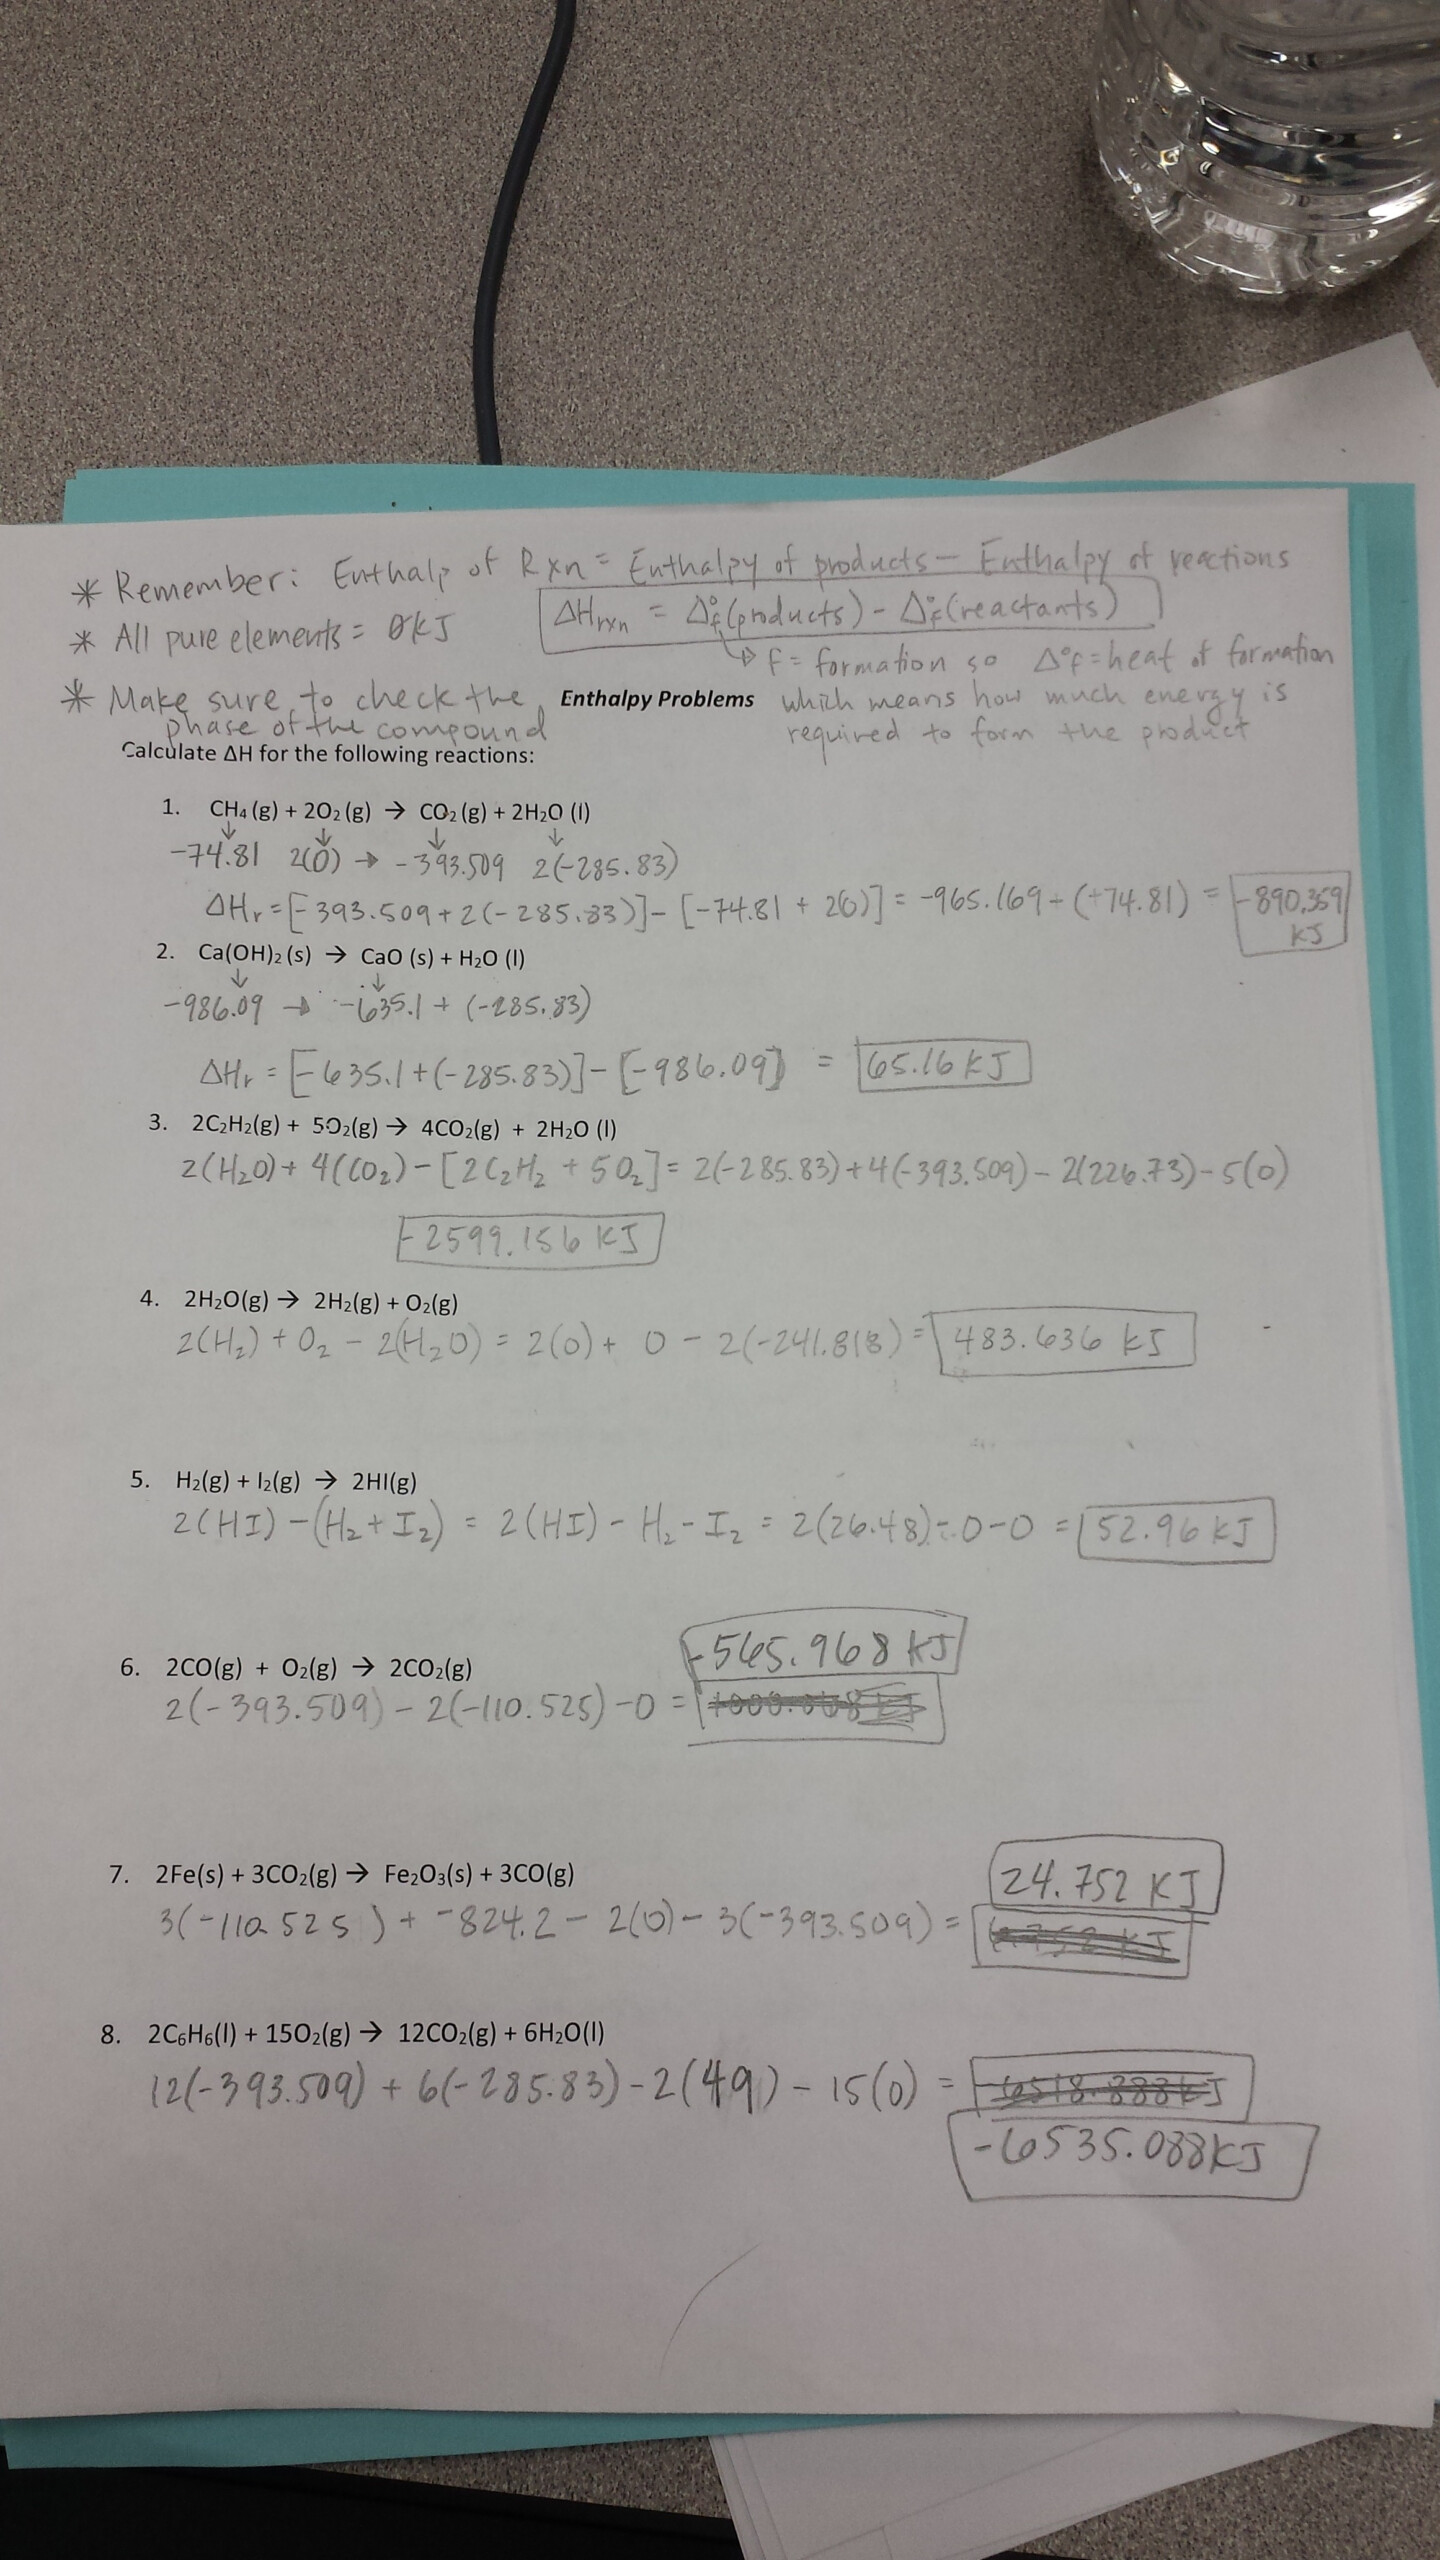 * Remember: Enthalp of Rxn = Enthalpy of products − Enthalpy of reactions
* All pure elements = 0kJ
ΔHrxn = Δ°f(products) − Δ°f(reactants)
f = formation so Δ°f = heat of formation
which means how much energy is
required to form the product
* Make sure to check the
phase of the compound
Enthalpy Problems
Calculate ΔH for the following reactions:
1. CH₄ (g) + 2O₂ (g) → CO₂ (g) + 2H₂O (l)
-74.81 2(0) → -393.509 2(-285.83)
ΔHr = [-393.509 + 2(-285.83)] − [-74.81 + 2(0)] = -965.169 + (+74.81) = -890.359 kJ
2. Ca(OH)₂ (s) → CaO (s) + H₂O (l)
-986.09 → -635.1 + (-285.83)
ΔHr = [-635.1 + (-285.83)] − [-986.09] = 65.16 kJ
3. 2C₂H₂(g) + 5O₂(g) → 4CO₂(g) + 2H₂O (l)
2(H₂O) + 4(CO₂) − [2C₂H₂ + 5O₂] = 2(-285.83) + 4(-393.509) − 2(226.73) − 5(0)
-2599.156 kJ
4. 2H₂O(g) → 2H₂(g) + O₂(g)
2(H₂) + O₂ − 2(H₂O) = 2(0) + 0 − 2(-241.818) = 483.636 kJ
5. H₂(g) + I₂(g) → 2HI(g)
2(HI) − (H₂ + I₂) = 2(HI) − H₂ − I₂ = 2(26.48) − 0 − 0 = 52.96 kJ
6. 2CO(g) + O₂(g) → 2CO₂(g)
-565.968 kJ
2(-393.509) − 2(-110.525) − 0 =
7. 2Fe(s) + 3CO₂(g) → Fe₂O₃(s) + 3CO(g)
24.752 kJ
3(-110.525) + -824.2 − 2(0) − 3(-393.509) =
8. 2C₆H₆(l) + 15O₂(g) → 12CO₂(g) + 6H₂O(l)
12(-393.509) + 6(-285.83) − 2(49) − 15(0) = -6518.888kJ
-6535.088kJ